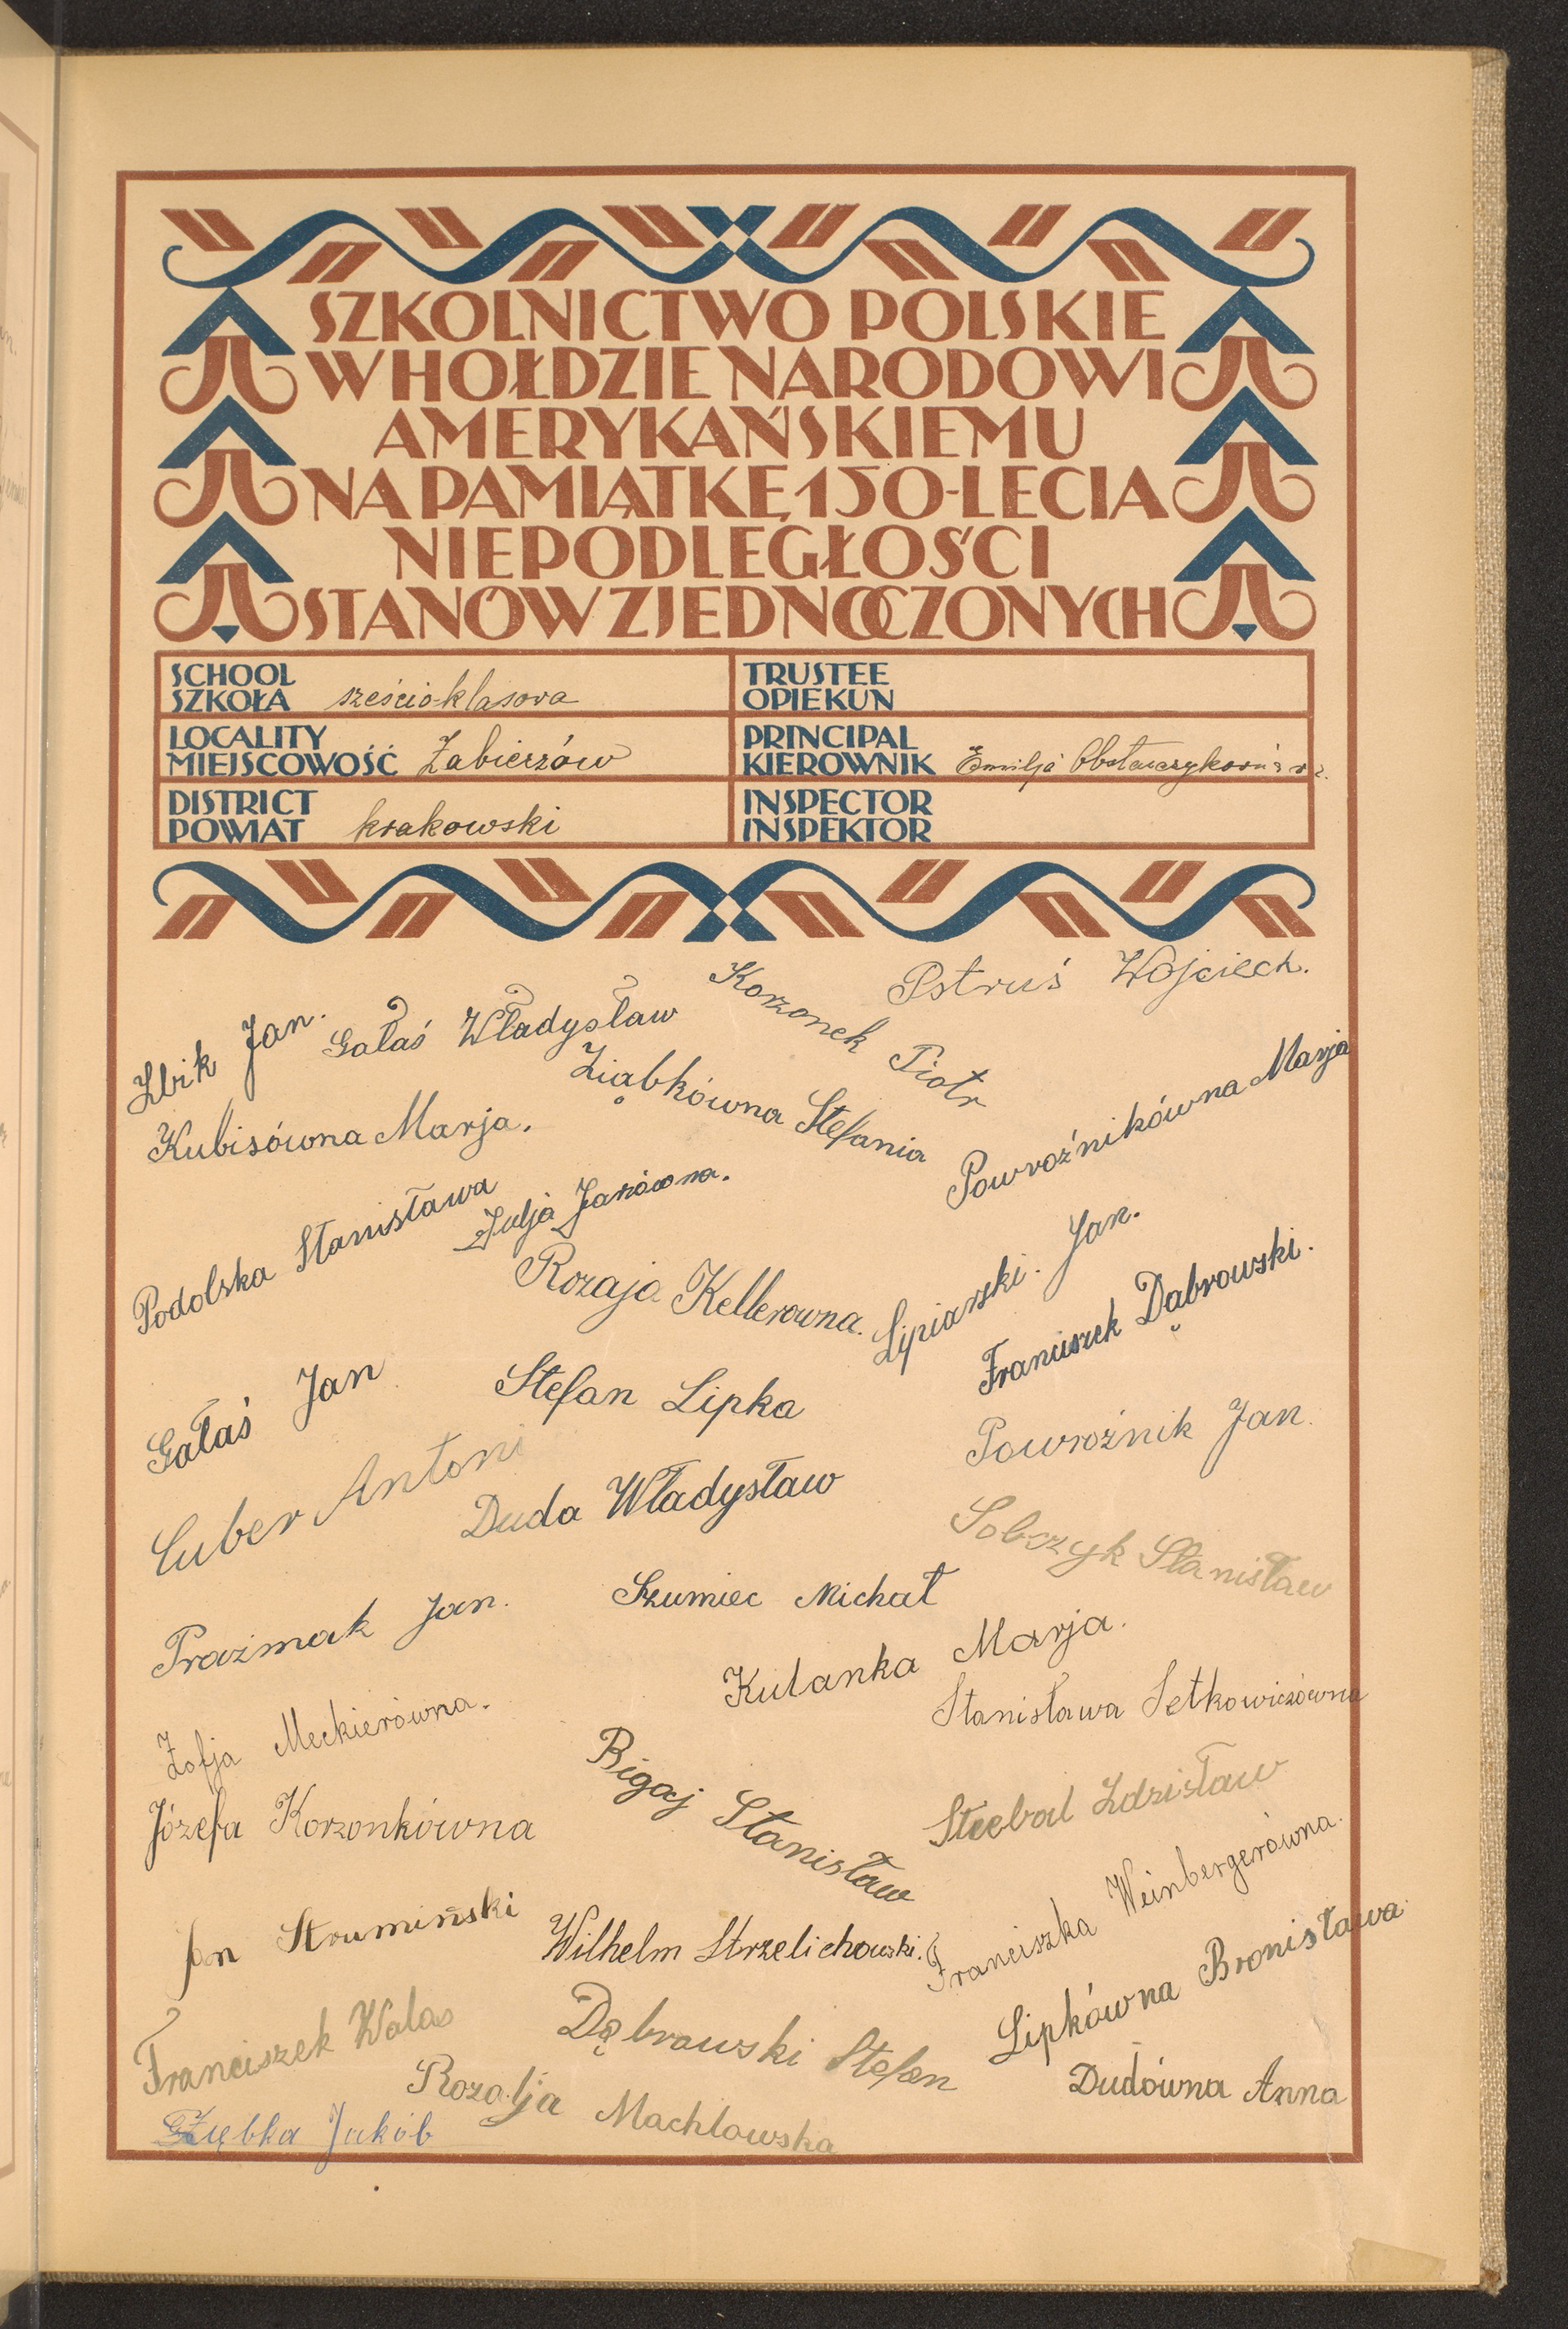 SZKOLNICTWO POLSKIE
W HOŁDZIE NARODOWI
AMERYKAŃSKIEMU
NA PAMIĄTKĘ 150-LECIA
NIEPODLEGŁOŚCI
STANÓW ZJEDNOCZONYCH
SCHOOL
SZKOŁA sześcio-klasowa
TRUSTEE
OPIEKUN
LOCALITY
MIEJSCOWOŚĆ Zabierzów
PRINCIPAL
KIEROWNIK Emilja
DISTRICT
POWIAT krakowski
INSPECTOR
INSPEKTOR
Pstruś Wojciech.
Korzonek Piotr
Gałaś Władysław
Żbik Jan.
Ziąbkówna Stefania
Powroźnikówna Marja
Kubisówna Marja.
Julja Janówna.
Podolska Stanisława
Rozaja Kellerowna.
Lipiarski. Jan.
Franciszek Dąbrowski.
Gałaś Jan
Stefan Lipka
Powroźnik Jan.
Luber Antoni
Duda Władysław
Sobczyk Stanisław
Szumiec Michał
Prazmak Jan.
Kulanka Marja.
Stanisława Setkowiczówna
Zofja Meckierówna.
Bigaj Stanisław
Józefa Korzonkówna
Steebal Zdzisław
Franciszka Weinbergerówna.
Jan Strumiński
Wilhelm Strzelichowski.
Lipkówna Bronisława.
Franciszek Walas
Dąbrowski Stefan
Dudówna Anna
Rozalja Machlowska
Ziębka Jakób